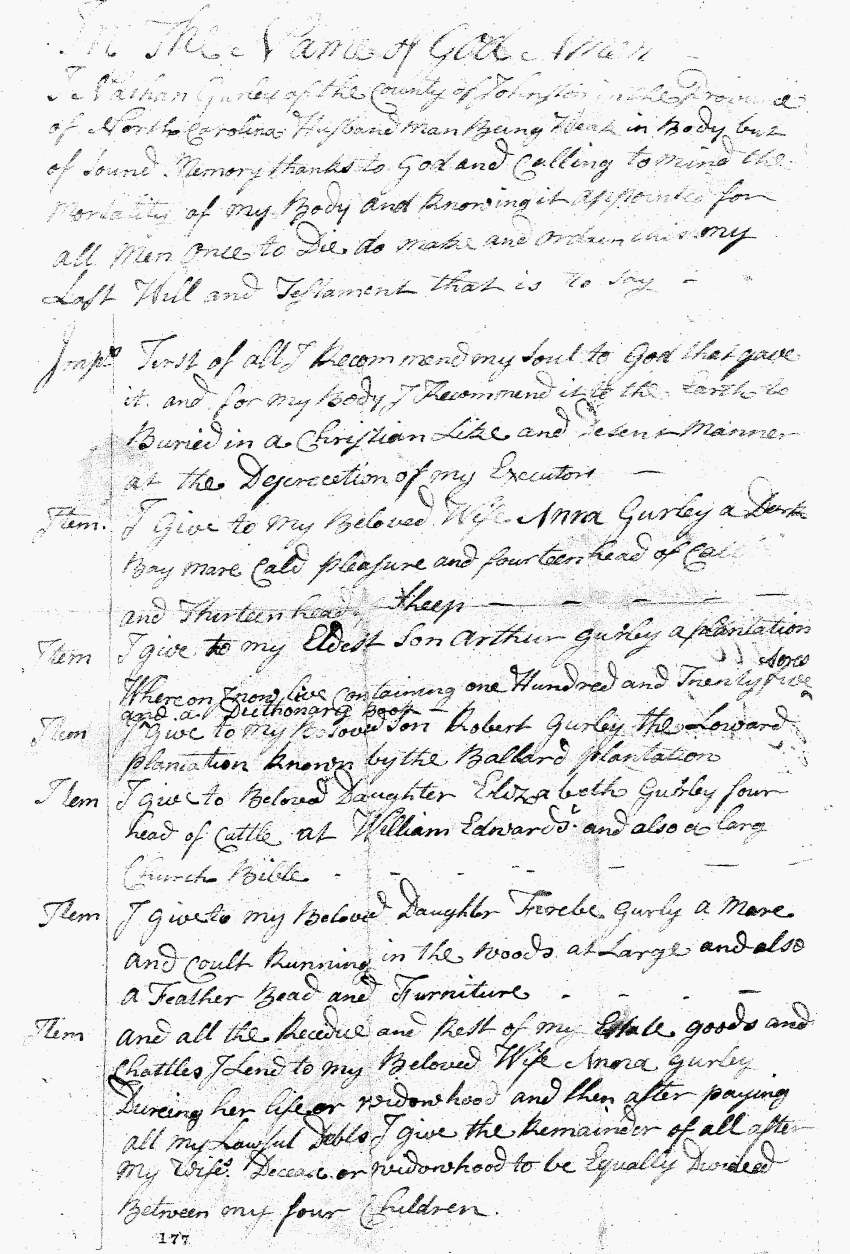 In The Name of God Amen
I Nathan Gurley of the County of Johnston in the Province
of North Carolina Husband Man Being Weak in Body but
of Sound Memory thanks to God and Calling to mind the
Mortality of my Body and knowing it appointed for
all Men once to Die do make and ordain this my
Last Will and Testament that is to say -
First of all I Recommend my Soul to God that gave
it and for my Body I Recommend it to the Earth to
Buried in a Christian Like and Desent Manner
at the Descrecetion of my Executors -
Item. I Give to my Beloved Wife Anna Gurley a Dark
Bay mare Cald pleasure and fourteen head of
and Thirteen head Sheep
Item I give to my Eldest Son Arthur Gurley a plantation
Whereon I now live containing one Hundred and Twenty five Acres
and a Dictionary Book -
Item I give to my Beloved Son Robert Gurley the Loward
plantation known by the Ballard plantation
Item I give to Beloved Daughter Elizabeth Gurley four
head of Cattle at William Edwards and also a larg
Church Bible
Item I give to my Beloved Daughter Ferebe Gurly a Mare
and Coult Running in the woods at Large and also
a Feather Bead and Furniture
Item and all the Recedue and Rest of my Estate goods and
Chattles I Lend to my Beloved Wife Anna Gurley
Dureing her life or widowhood and then after paying
all my Lawful Debts I give the Remainder of all after
my Wifes Decease or widowhood to be Equally Divided
Between my four Children.
177